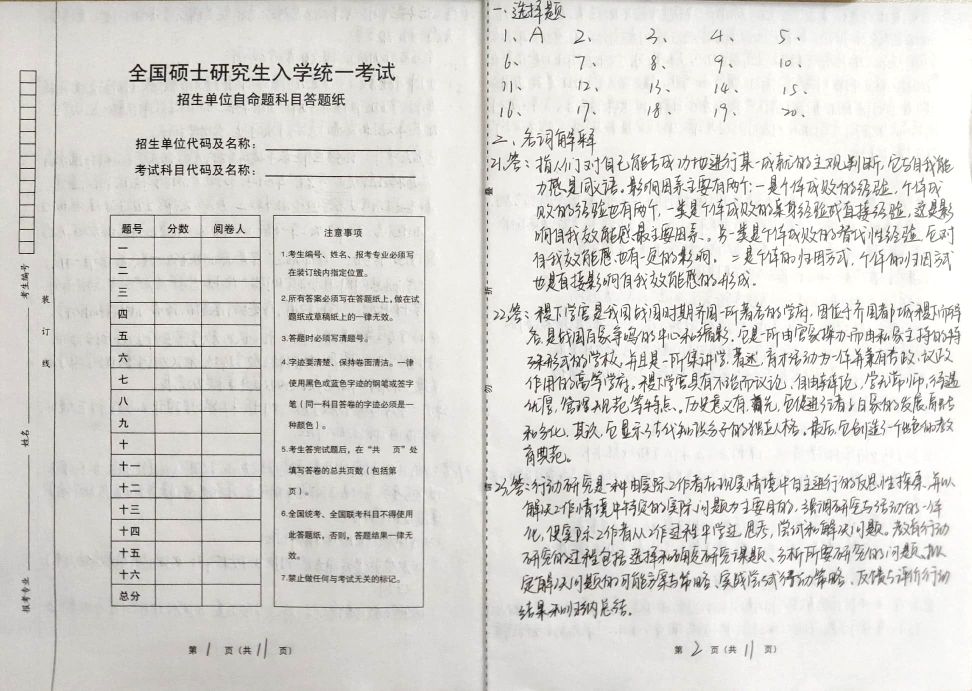 全国硕士研究生入学统一考试
招生单位自命题科目答题纸
招生单位代码及名称：
考试科目代码及名称：
题号 分数 阅卷人
一
二
三
四
五
六
七
八
九
十
十一
十二
十三
十四
十五
十六
总分
注意事项
1.考生编号、姓名、报考专业必须写
在装订线内指定位置。
2.所有答案必须写在答题纸上，做在试
题纸或草稿纸上的一律无效。
3.答题时必须写清题号。
4.字迹要清楚、保持卷面清洁。一律
使用黑色或蓝色字迹的钢笔或签字
笔（同一科目答卷的字迹必须是一
种颜色）。
5.考生答完试题后，在“共　页”处
填写答卷的总共页数（包括第
页）。
6.全国统考、全国联考科目不得使用
此答题纸，否则，答题结果一律无
效。
7.禁止做任何与考试无关的标记。
考生编号
姓名
报考专业
装
订
线
第 1 页（共 11 页）
一、选择题
1、A 2、 3、 4、 5、
6、 7、 8、 9、 10、
11、 12、 13、 14、 15、
16、 17、 18、 19、 20、
二、名词解释
21、答：指人们对自己能否成功地进行某一成就的主观判断，它与自我能
力感是同义语。影响因素主要有两个：一是个体成败的经验，个体成
败的经验也有两个，一类是个体成败的亲身经验或直接经验，这是影
响自我效能感最主要因素。另一类是个体成败的替代性经验，它对
自我效能感也有一定的影响。二是个体的归因方式，个体的归因方式
也是直接影响自我效能感的形成。
22、答：稷下学宫是我国战国时期齐国一所著名的学府，因位于齐国都城稷下而得
名，是战国百家争鸣的中心和缩影，它是一所由官家操办而由私家主持的特
殊形式的学校，并且是一所集讲学、著述、育才活动为一体并兼有咨政、议政
作用的高等学府。稷下学宫具有不治而议论、自由辩论、学术尊师、待遇
优厚、管理规范等特点。历史意义有，首先，它促进了诸子百家的发展、
和分化，其次，它显示了古代知识分子的独立人格。最后，它创造了一个出色的教
育典范。
23、答：行动研究是一种由实际工作者在现实情境中自主进行的反思性探索，并以
解决工作情境中特定的实际问题为主要目的，强调研究与活动的一体
化，使实际工作者从工作过程中学会思考、尝试和解决问题。教育行动
研究的过程包括选择和确定研究课题、分析所要研究的问题、拟
定解决问题的可能方案与策略、实践尝试行动策略、反馈与评价行动
结果和归纳总结。
第 2 页（共 11 页）